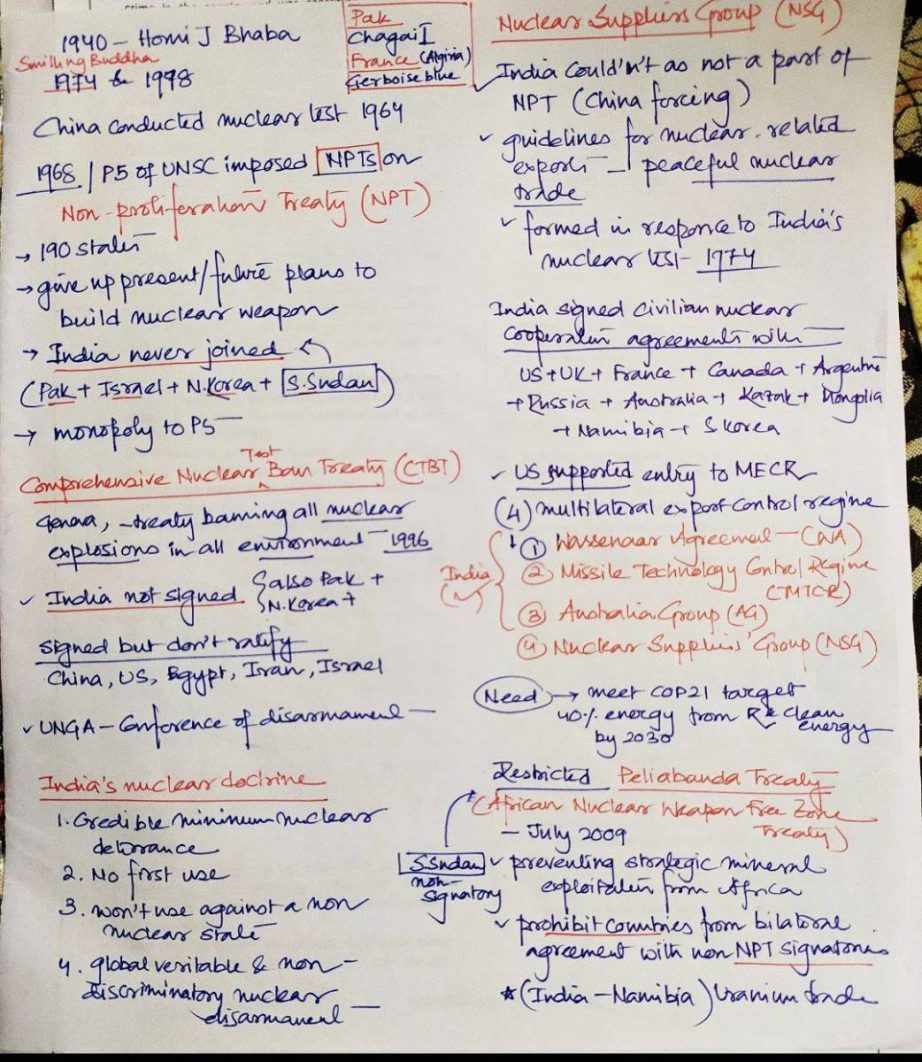 1940 - Homi J Bhaba
Smilling Buddha
1974 & 1998
Pak
Chagai I
France (Algiria)
Gerboise blue
China conducted nuclear test 1964
1968 / P5 of UNSC imposed NPTs on
Non-proliferation Treaty (NPT)
→ 190 states
→ give up present/future plans to
build nuclear weapon
→ India never joined
(Pak + Israel + N.Korea + S.Sudan)
→ monopoly to P5
Test
Comprehensive Nuclear Ban Treaty (CTBT)
Geneva, - treaty banning all nuclear
explosions in all environment 1996
✓ India not signed { also Pak +
N.Korea +
signed but don't ratify
China, US, Egypt, Iran, Israel
✓ UNGA - Conference of disarmament
India's nuclear doctrine
1. Credible minimum nuclear
deterance
2. No first use
3. won't use against a non
nuclear state
4. global veritable & non-
discriminatory nuclear
disarmament
Nuclear Suppliers Group (NSG)
✓ India Couldn't as not a part of
NPT (China forcing)
✓ guidelines for nuclear. related
exports - peaceful nuclear
trade
✓ formed in responce to India's
nuclear test - 1974
India signed civilian nuclear
cooperation agreements with
US + UK + France + Canada + Argentina
+ Russia + Australia + Kazak + Mongolia
+ Namibia + S Korea
✓ US supported entry to MECR
(4) multilateral export control regime
India (✓) { ① Wassenaar Agreement - (WA)
② Missile Technology Control Regime
(MTCR)
③ Australia Group (AG)
④ Nuclear Suppliers' Group (NSG)
Need → meet COP21 target
40% energy from RE clean
energy
by 2030
Restricted Peliabanda Treaty
(African Nuclear Weapon Free Zone
Treaty)
- July 2009
S Sudan
non-
signatory
✓ preventing strategic mineral
exploitation from Africa
✓ prohibit countries from bilateral
agreement with non NPT signatories
* (India - Namibia) Uranium trade